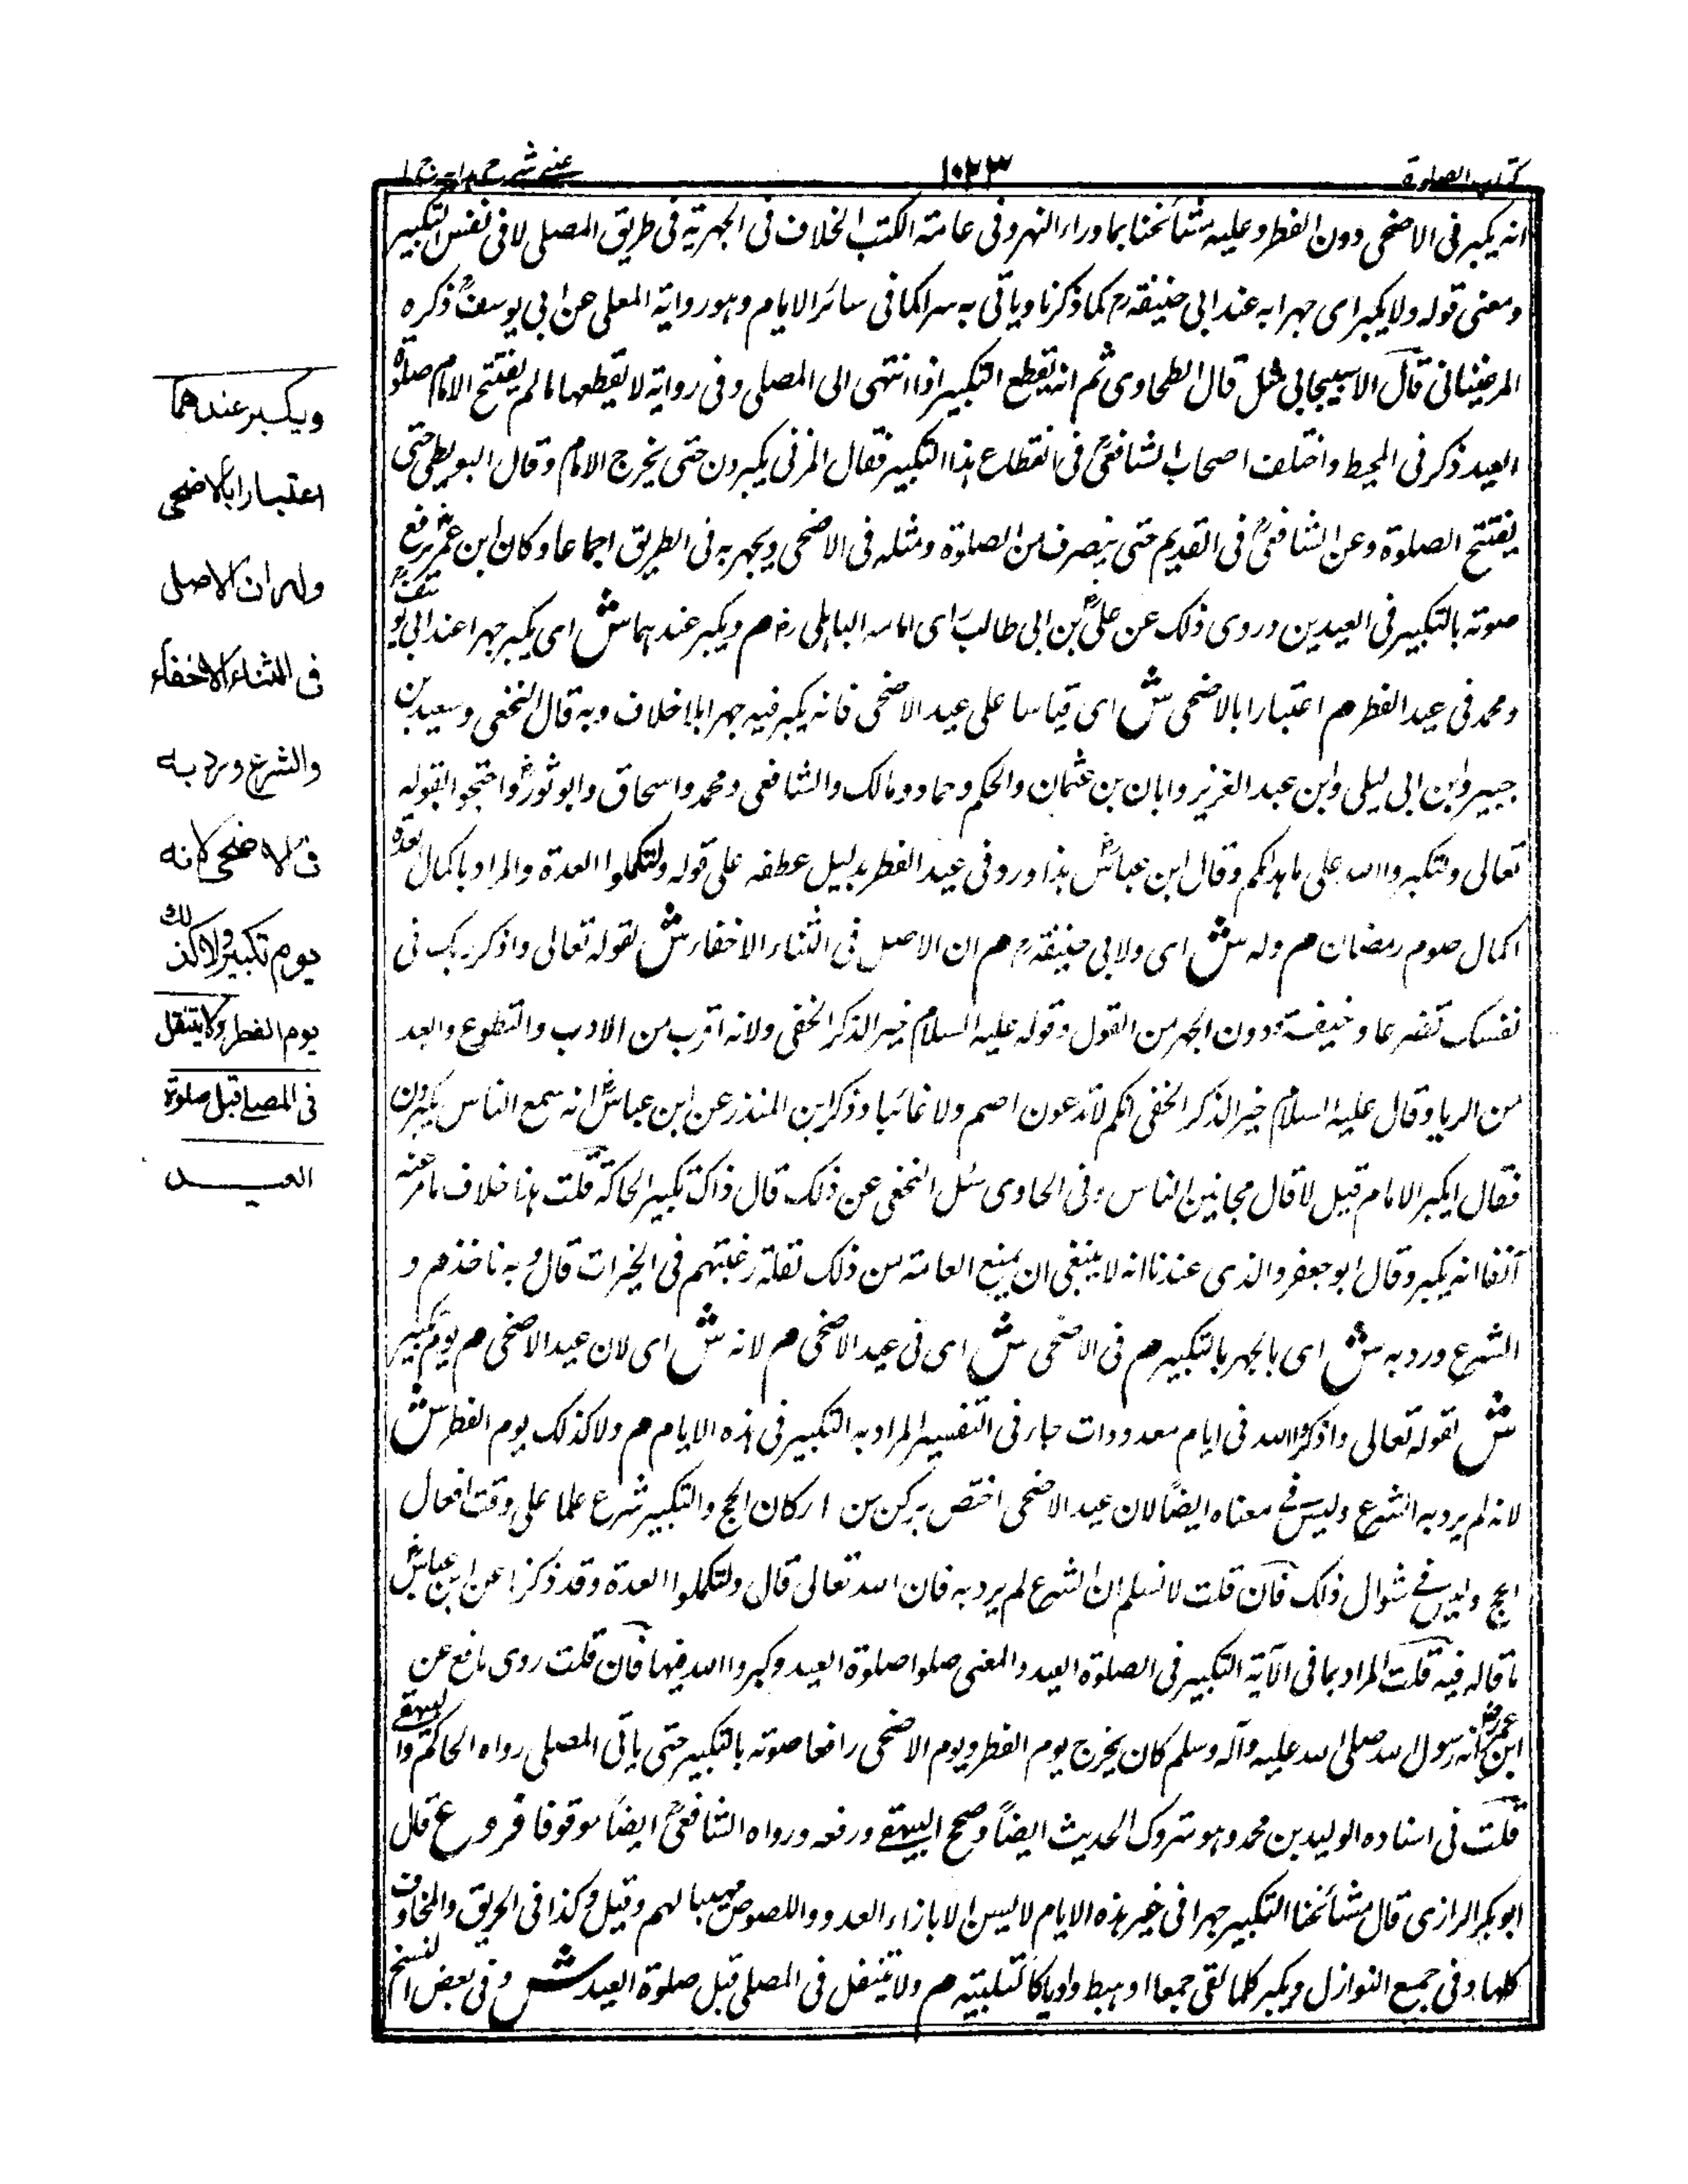 كتاب الصلوة
١٠٢٣
عينى شرح هدايه ج ١
انه يكبر فى الاضحى دون الفطر وعليه مشائخنا بما وراء النهر وفى عامة الكتب الخلاف فى الجهرية فى طريق المصلى لا فى نفس التكبير
ومعنى قوله ولا يكبر اى جهرا به عند ابى حنيفة رح كما ذكرنا وياتى به سرا كما فى سائر الايام وهو رواية المعلى عن ابى يوسف رح ذكره
المرغينانى قال الاسبيجابى مثل قال الطحاوى ثم انه يقطع التكبير اذا انتهى الى المصلى وفى رواية لا يقطعها ما لم يفتتح الامام صلوة
العيد ذكر فى المحيط واختلف اصحاب الشافعى رح فى انقطاع هذا التكبير فقال المزنى يكبرون حتى يخرج الامام وقال البويطى حتى
يفتتح الصلوة وعن الشافعى رح فى القديم حتى ينصرف من الصلوة ومثله فى الاضحى ويجهر به فى الطريق اجماعا وكان ابن عمر رض يرفع
صوته بالتكبير فى العيدين وروى ذلك عن على رض بن ابى طالب اى امامه الباهلى رض م ويكبر عندهما ش اى يكبر جهرا عند ابى يوسف رح
ومحمد فى عيد الفطر م اعتبارا بالاضحى ش اى قياسا على عيد الاضحى فانه يكبر فيه جهرا بلا خلاف وبه قال النخعى وسعيد بن
جبير وابن ابى ليلى وابن عبد العزيز وابان بن عثمان والحكم وحماد ومالك والشافعى ومحمد واسحاق وابو ثور رح واحتجوا بقوله
تعالى ولتكبروا الله على ما هداكم وقال ابن عباس رض هذا ورد فى عيد الفطر بدليل عطفه على قوله ولتكملوا العدة والمراد باكمال العدة
اكمال صوم رمضان م وله ش اى ولابى حنيفة رح م ان الاصل فى الثناء الاخفاء ش لقوله تعالى واذكر ربك فى
نفسك تضرعا وخيفة ودون الجهر من القول وقوله عليه السلام خير الذكر الخفى ولانه اقرب من الادب والتطوع والبعد
من الريا وقال عليه السلام خير الذكر الخفى انكم لا تدعون اصم ولا غائبا وذكر ابن المنذر عن ابن عباس رض انه سمع الناس يكبرون
فقال ايكبر الامام قيل لا قال مجانين الناس وفى الحاوى سئل النخعى عن ذلك قال ذاك تكبير الحاكة قلت هذا خلاف ما مر عنه
آنفا انه يكبر وقال ابو جعفر والذى عندنا انه لا ينبغى ان يمنع العامة من ذلك لقلة رغبتهم فى الخيرات قال وبه ناخذ م و
الشرع ورد به ش اى بالجهر بالتكبير م فى الاضحى ش اى فى عيد الاضحى م لانه ش اى لان عيد الاضحى م يوم تكبير
ش لقوله تعالى واذكروا الله فى ايام معدودات جاء فى التفسير المراد به التكبير فى هذه الايام م ولا كذلك يوم الفطر ش
لانه لم يرد به الشرع وليس فى معناه ايضاً لان عيد الاضحى اختص بركن من اركان الحج والتكبير شرع علما على وقت افعال
الحج وليس فى شوال ذلك فان قلت لا نسلم ان الشرع لم يرد به فان الله تعالى قال ولتكملوا العدة وقد ذكرنا عن ابن عباس رض
ما قاله فيه قلت المراد بما فى الآية التكبير فى الصلوة العيد والمعنى صلوا صلوة العيد وكبروا الله فيها فان قلت روى نافع عن
ابن عمر رض انه رسول الله صلى الله عليه وآله وسلم كان يخرج يوم الفطر ويوم الاضحى رافعا صوته بالتكبير حتى ياتى المصلى رواه الحاكم رح والبيهقى
قلت فى اسناده الوليد بن محمد وهو متروك الحديث ايضاً وصحح البيهقى ورفعه ورواه الشافعى رح ايضاً موقوفا فروع قال
ابو بكر الرازى قال مشائخنا التكبير جهرا فى غير هذه الايام لا يسن الا بازاء العدو واللصوص مهيبا لهم وقيل وكذا فى الحريق والمخاوف
كلها وفى جميع النوازل ويكبر كلما لقى جمعا او هبط واديا كالتلبية م ولا يتنفل فى المصلى قبل صلوة العيد ش وفى بعض النسخ
ويكبر عندهما
اعتبارا بالاضحى
وله ان الاصل
فى الثناء الاخفاء
والشرع ورد به
فى الاضحى لانه
يوم تكبير ولا كذلك
يوم الفطر ولا يتنفل
فى المصلى قبل صلوة
العيد